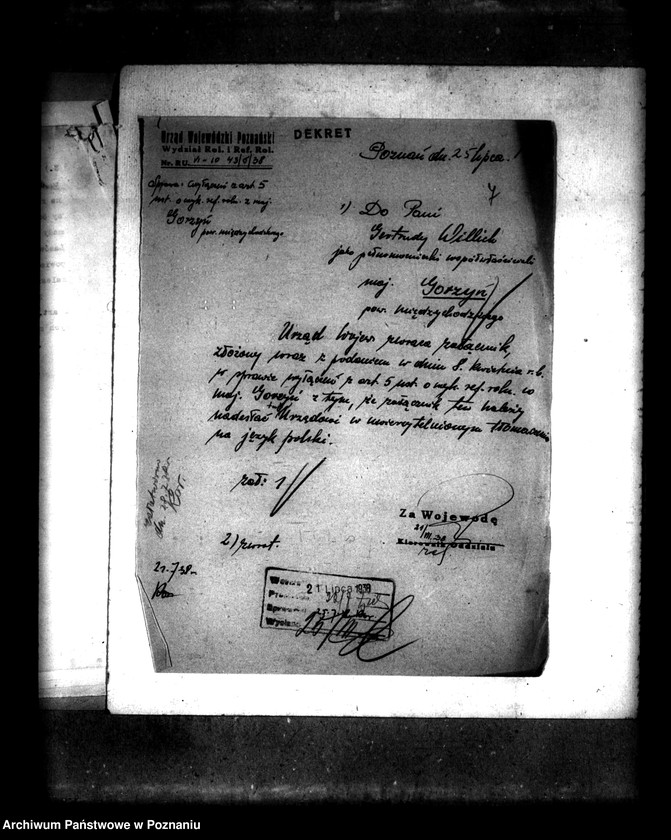 Urząd Wojewódzki Poznański
Wydział Rol. i Ref. Rol.
Nr. RU. VI-10 43/5/38
DEKRET
Poznań dn. 25 lipca
7
Sprawa: wyłączeń z art 5
ust. o wyk. ref. roln. z maj.
Gorzyń
pow. międzychodzkiego
1) Do Pani
Gertrudy Willich
jako pełnomocniczki współwłaścicieli
maj. Gorzyń
pow. międzychodzkiego
Urząd Wojew. zwraca załącznik,
złożony wraz z podaniem w dniu 8. kwietnia r. b.
w sprawie wyłączeń z art 5 ust. o wyk. ref. roln. w
maj. Gorzyń z tym, że załącznik ten należy
nadesłać Urzędowi w uwierzytelnionym tłomaczeniu
na język polski.
zał: 1
2) zwrot.
Za Wojewodę
Kierownik Oddziału
21.7.38
21 Lipca 1938
Archiwum Państwowe w Poznaniu